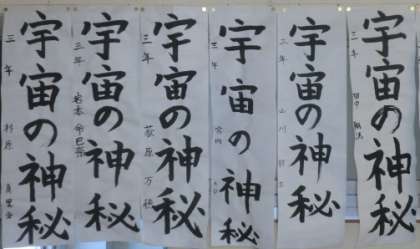 宇宙の神秘
三年
宇宙の神秘
三年
宇宙の神秘
三年 荻原 万
宇宙の神秘
三年 宮内
宇宙の神秘
三年 山川
宇宙の神秘
三年 田中